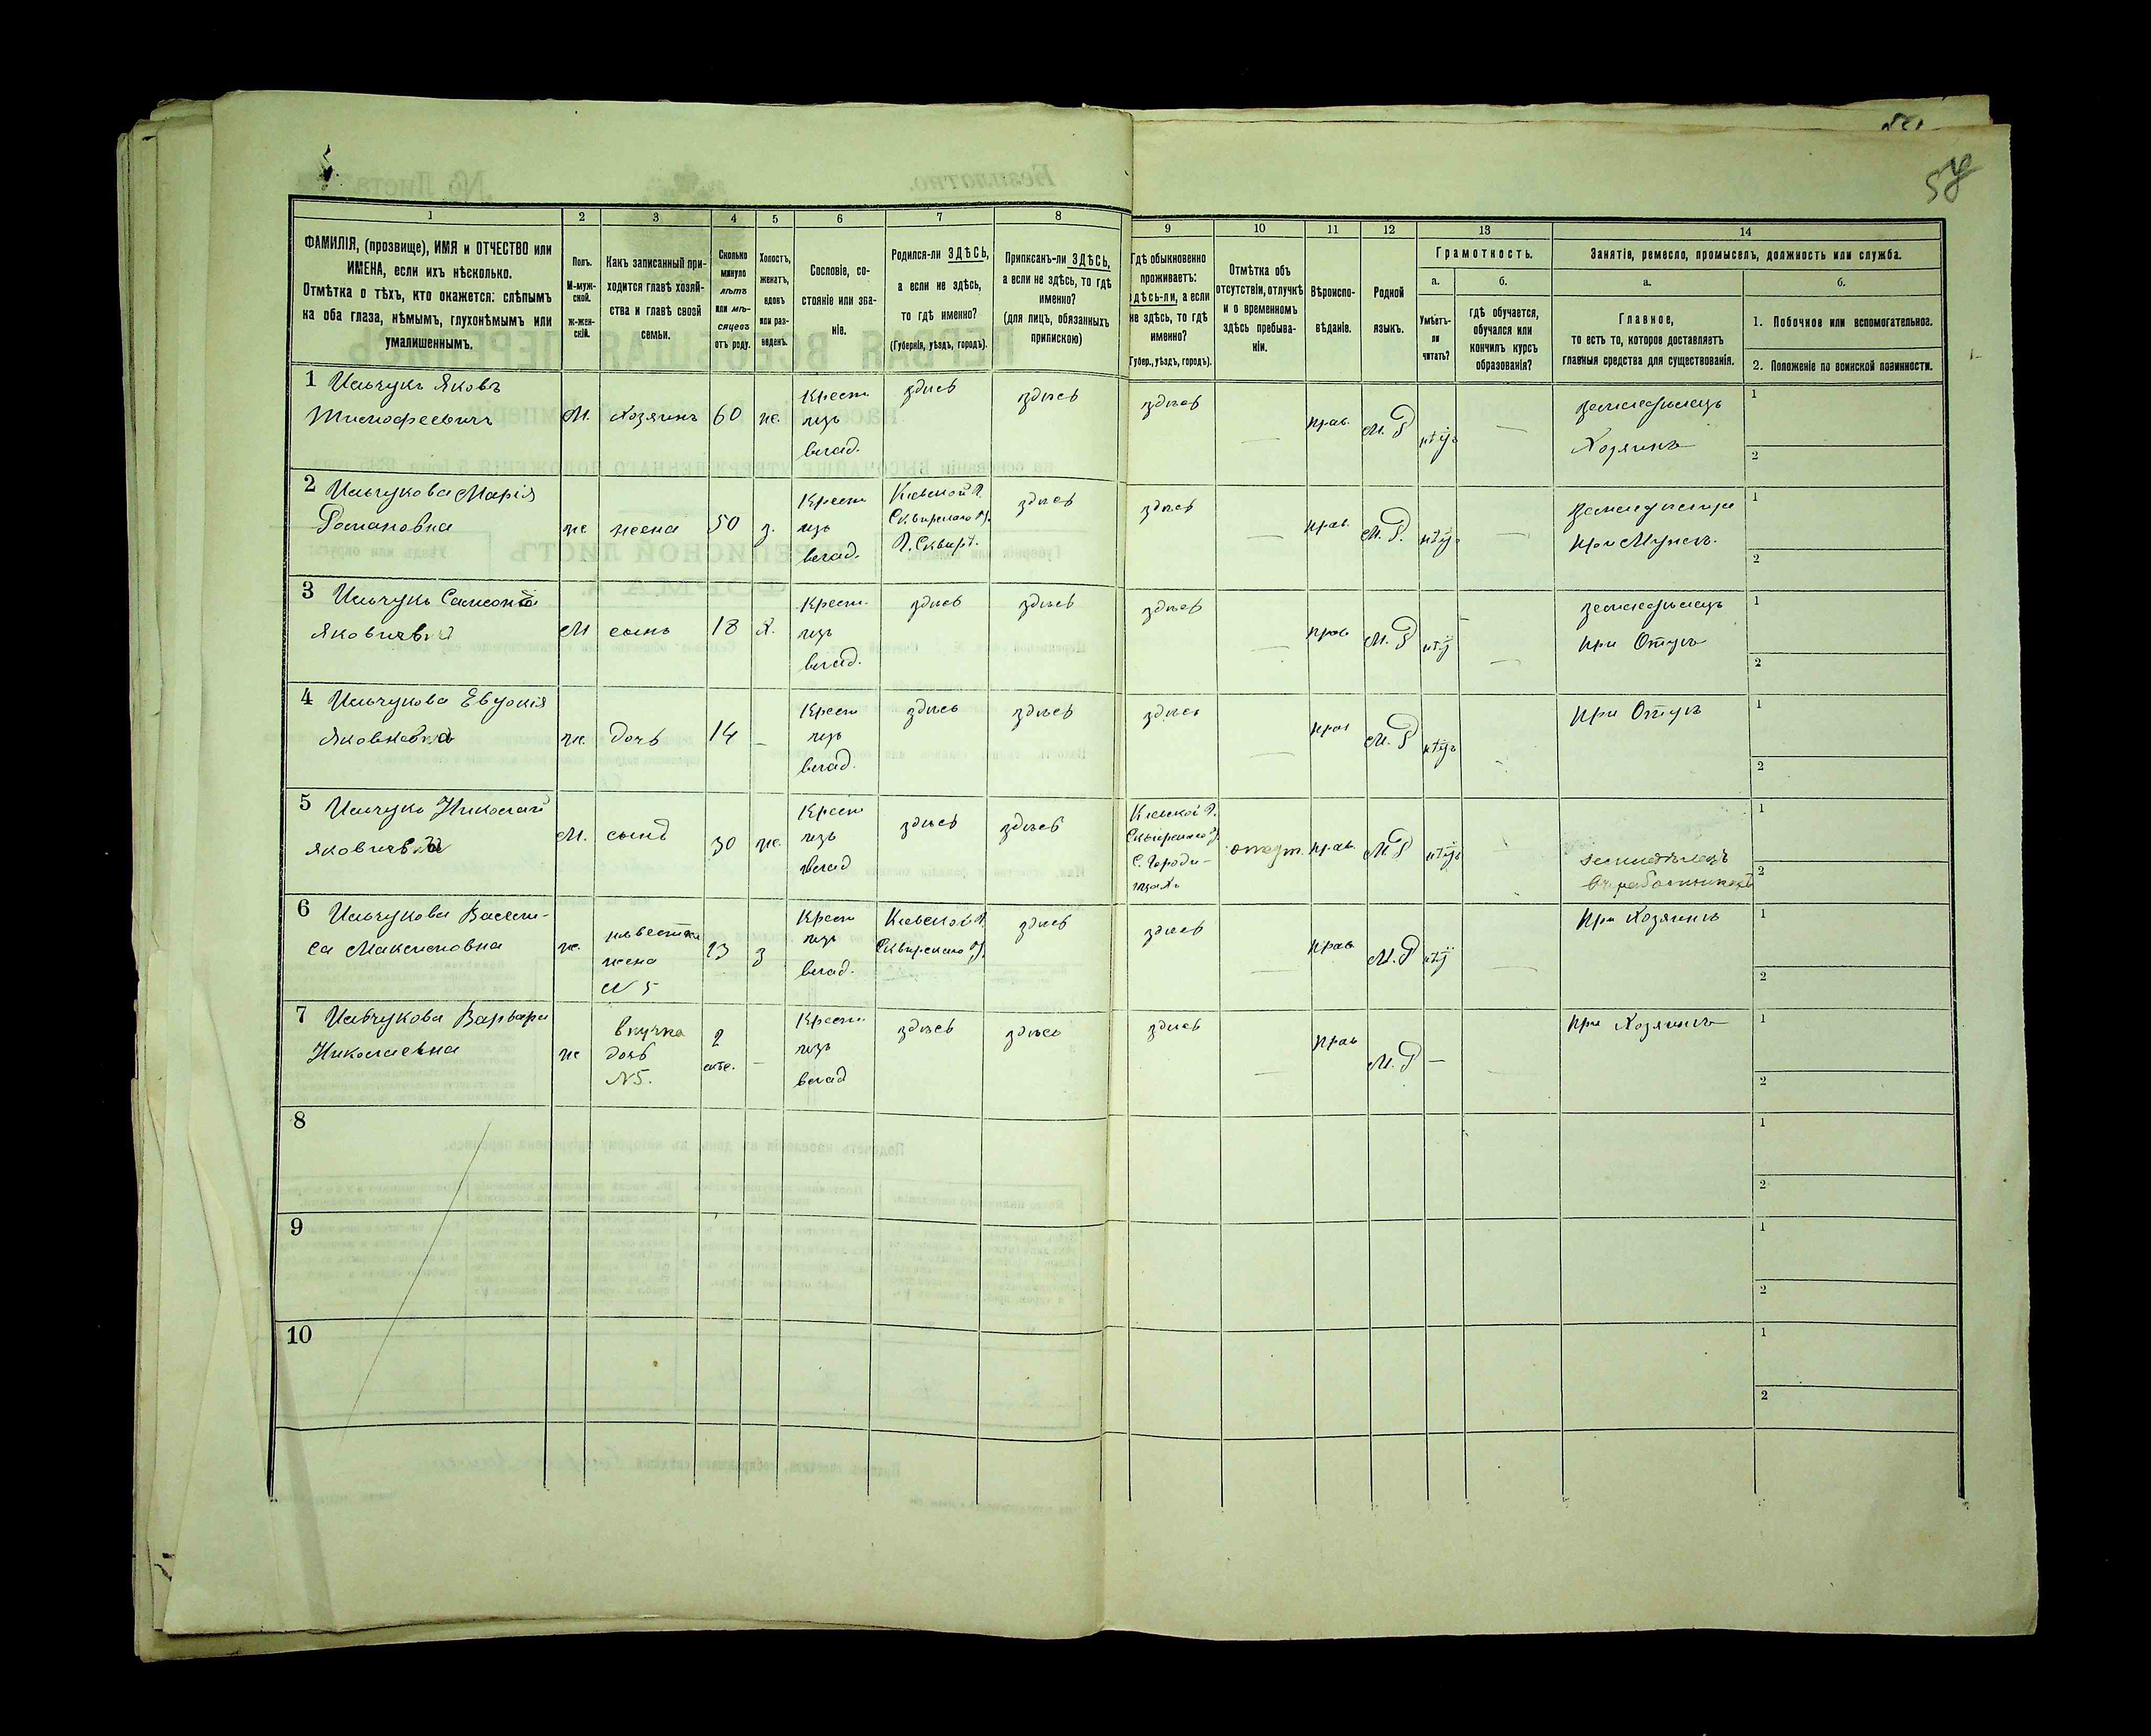 57
1
2
3
4
5
6
7
8
9
10
11
12
13
14
ФАМИЛІЯ, (прозвище), ИМЯ и ОТЧЕСТВО или
ИМЕНА, если ихъ нѣсколько.
Отмѣтка о тѣхъ, кто окажется: слѣпымъ
на оба глаза, нѣмымъ, глухонѣмымъ или
умалишеннымъ.
Полъ.
М-муж-
ской.
Ж-жен-
скій.
Какъ записанный при-
ходится главѣ хозяй-
ства и главѣ своей
семьи.
Сколько
минуло
лѣтъ
или мѣ-
сяцевъ
отъ роду.
Холостъ,
женатъ,
вдовъ
или раз-
веденъ.
Сословіе, со-
стояніе или зва-
ніе.
Родился-ли ЗДѢСЬ,
а если не здѣсь,
то гдѣ именно?
(Губернія, уѣздъ, городъ).
Приписанъ-ли ЗДѢСЬ,
а если не здѣсь, то гдѣ
именно?
(для лицъ, обязанныхъ
припискою)
Гдѣ обыкновенно
проживаетъ:
здѣсь-ли, а если
не здѣсь, то гдѣ
именно?
(Губер., уѣздъ, городъ).
Отмѣтка объ
отсутствіи, отлучкѣ
и о временномъ
здѣсь пребыва-
ніи.
Вѣроиспо-
вѣданіе.
Родной
языкъ.
Грамотность.
а.
Умѣетъ-
ли
читать?
б.
гдѣ обучается,
обучался или
кончилъ курсъ
образованія?
Занятіе, ремесло, промыселъ, должность или служба.
а.
Главное,
то есть то, которое доставляетъ
главныя средства для существованія.
б.
1. Побочное или вспомогательное.
2. Положеніе по воинской повинности.
1 Ильчукъ Яковъ
Тимофеевичъ
М.
Хозяинъ
60
же.
Крест
изъ
влад.
здѣсь
здѣсь
здѣсь
—
прав.
М. Р
нѣтъ
—
земледѣлецъ
Хозяинъ
1
2
2 Ильчукова Марія
Романовна
же
жена
50
з.
Крест
изъ
влад.
Кіевской Г.
Сквирскаго У.
Г. Сквирѣ.
здѣсь
здѣсь
—
прав.
М. Р.
нѣтъ
при Мужѣ.
1
2
3 Ильчукъ
Яковичъ
М
сынъ
18
Х.
Крест
изъ
влад.
здѣсь
здѣсь
здѣсь
—
прав
М. Р
нѣтъ
—
земледѣлецъ
при Отцѣ
1
2
4 Ильчукова Евдокія
Яковлевна
же.
дочь
14
—
Крест
изъ
влад.
здѣсь
здѣсь
здѣсь
—
прав
М. Р
нѣтъ
при Отцѣ
1
2
5 Ильчукъ Николай
Яковичъ
М.
сынъ
30
же.
Крест
изъ
влад
здѣсь
здѣсь
Кіевской Г.
Сквирскаго У.
С. Городи-
щахъ
отсут.
прав.
М. Р
нѣтъ
земледѣлецъ
1
2
6 Ильчукова Васили-
са Максимовна
же.
невестка
жена
N 5
23
з
Крест
изъ
влад.
Кіевской Г.
Сквирскаго У.
здѣсь
здѣсь
—
прав
М. Р
нѣтъ
—
при Хозяинѣ
1
2
7 Ильчукова Варвара
Николаевна
же
внучка
дочь
N 5.
2
мѣс.
—
Крест
изъ
влад
здѣсь
здѣсь
здѣсь
—
прав
М. Р
—
—
при Хозяинѣ
1
2
8
1
2
9
1
2
10
1
2